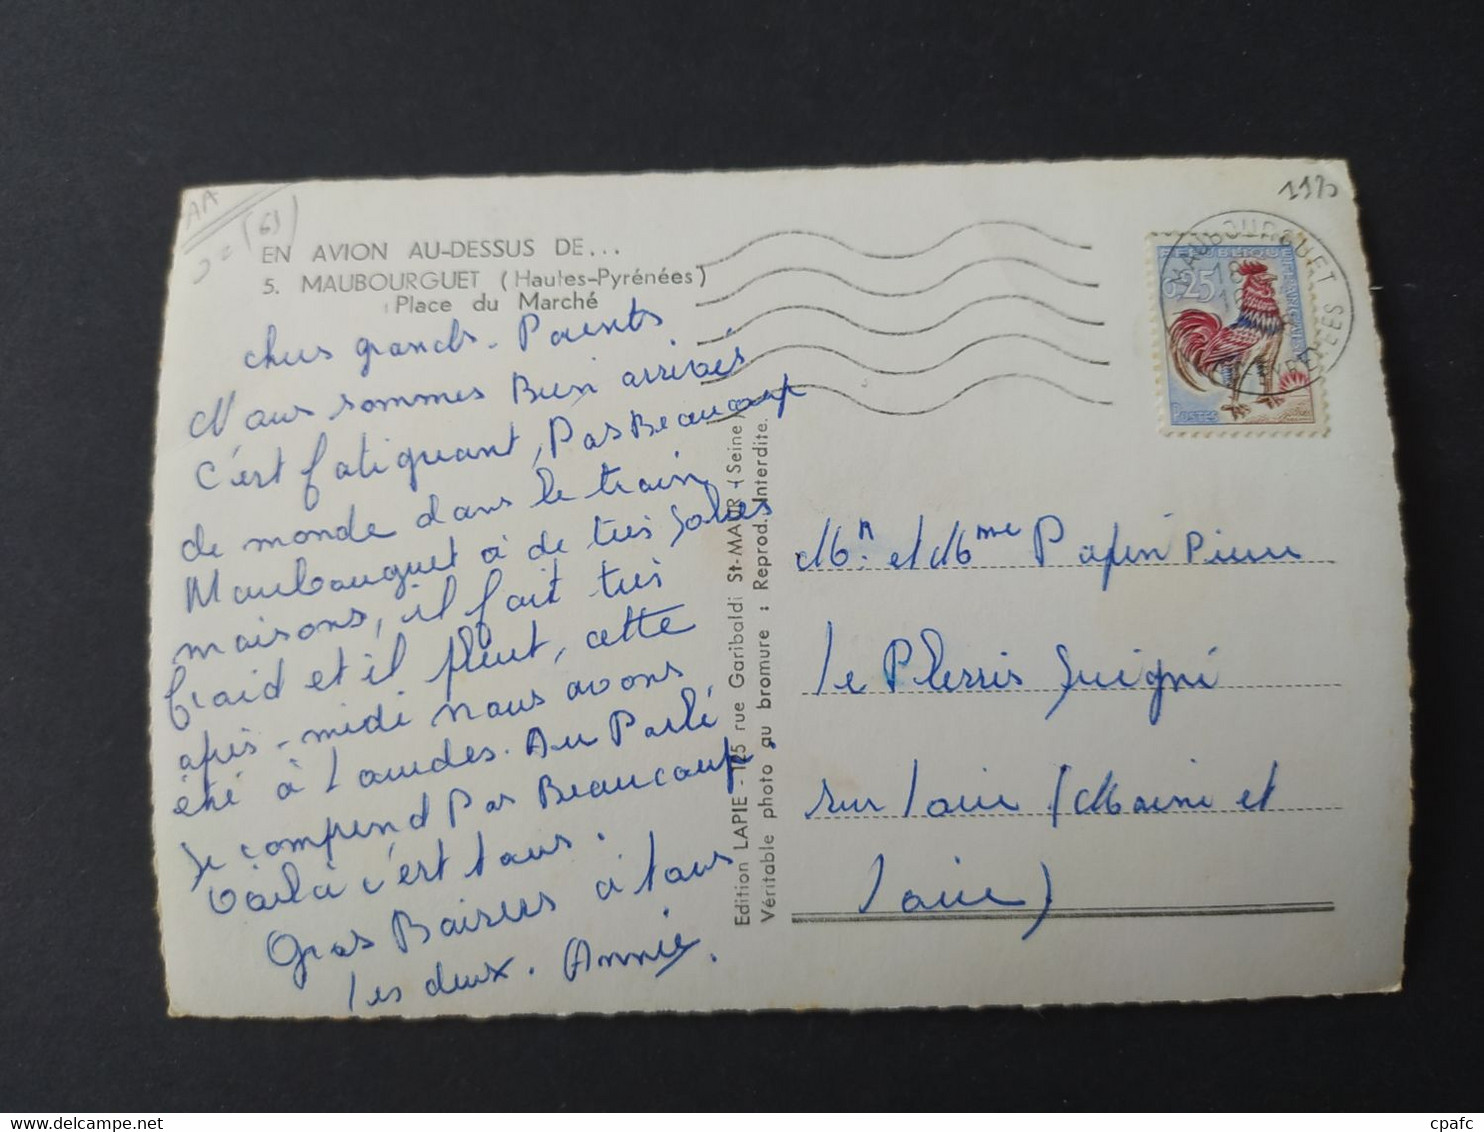 AA
(61)
1190
EN AVION AU-DESSUS DE...
5. MAUBOURGUET (Hautes-Pyrénées)
Place du Marché
chers grands-Parents
Nous sommes Bien arrivés
c'est fatiguant, Pas Beaucoup
de monde dans le train
Maubouguet à de très Jolies
maisons, il fait très
froid et il pleut, cette
après-midi nous avons
été à Lourdes. Au Parlé
Je comprend Pas Beaucoup,
Voilà c'est tous.
Gros Baisers à tous
les deux. Annie.
Edition LAPIE - 125 rue Garibaldi St-MAUR (Seine)
Véritable photo au bromure : Reprod. Interdite.
MAUBOURGUET
PYRÉNÉES
RÉPUBLIQUE FRANÇAISE
0,25
POSTES
Mr. et Mme Papin Pierre
Le Plessis Juigné
sur Loire (Maine et
Loire)
cpafc